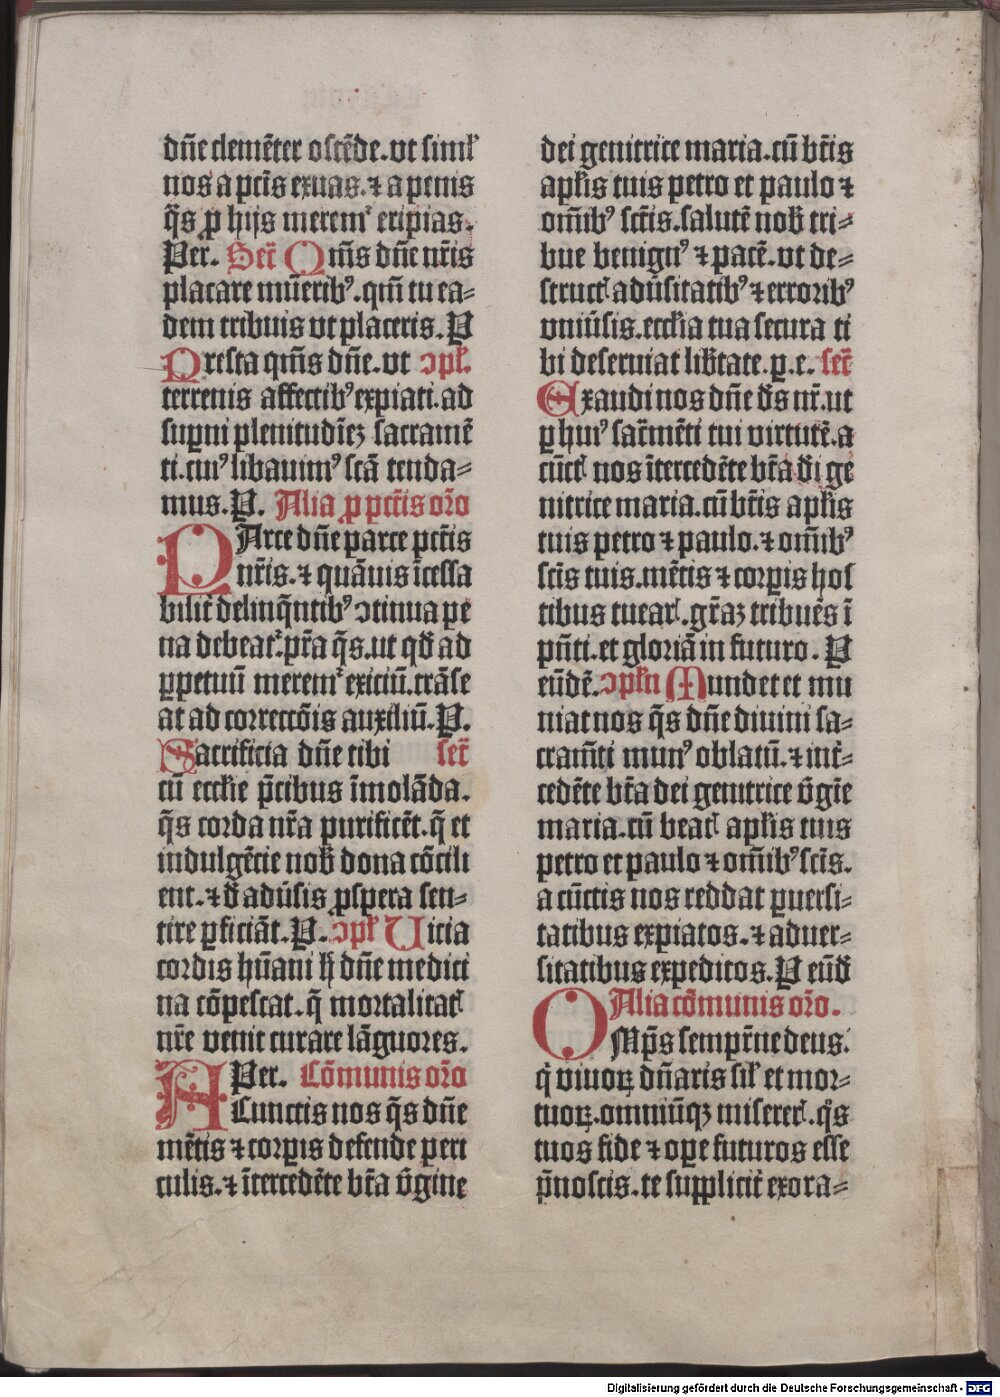 dñe clemẽter oſtẽde.vt ſimul
nos a pctĩs exuas.⁊ a penis
q̃s ꝓ hijs meremꝰ eripias.
Per. Secr̃ Om̃s dñe nr̃is
placare mũeribꝰ.qm̃ tu ea-
dem tribuis vt placeris. P
Preſta qm̃s dñe.vt ↄpl̃.
terrenis affectibꝰ expiati.ad
ſuꝑni plenitudĩeꝫ ſacramẽ
ti.cuiꝰ libauimꝰ ſcã tenda-
mus.P. Alia ꝓ pctĩs or̃o
PArce dñe parce pctĩs
nr̃is.⁊ quãuis ĩceſſa
bilit̃ delinq̃ntibꝰ ↄtinua pe
na debeat̃.pr̃a q̃s.ut qd̃ ad
ꝑpetuũ meremꝰ exiciũ.trãſe
at ad correctõis auxiliũ.P.
Sacrificia dñe tibi ſecr̃
cũ eccl̃ie p̃cibus ĩmolãda.
q̃s corda nr̃a purificẽt.q̃ et
indulgẽcie nob̃ dona cõcili
ent.⁊ d̃ adũſis ꝓſpera ſen-
tire ꝑficiãt.P. ↄpl̃ Uicia
cordis hũani h̃ dñe medici
na cõpeſcat.q̃ mortalitatꝭ
nr̃e venit curare lãguores.
Per. Cõmunis or̃o
ACunctis nos q̃s dñe
mẽtis ⁊ corꝑis defende peri
culis.⁊ ĩtercedẽte bt̃a ṽgine
dei genitrice maria.cũ bt̃is
apl̃is tuis petro et paulo ⁊
om̃ibꝰ ſct̃is.ſalutẽ nob̃ tri-
bue benignꝰ ⁊ pacẽ.vt de-
ſtructꝭ adũſitatibꝰ ⁊ erroribꝰ
vniũſis.eccl̃ia tua ſecura ti
bi deſeruiat lib̃tate.p.e. ſecr̃
Exaudi nos dñe d̃s nr̃.ut
ꝑ huiꝰ ſacr̃mẽti tui virtutẽ.a
cũctꝭ nos ĩtercedẽte bt̃a d̃i ge
nitrice maria.cũ bt̃is apl̃is
tuis petro ⁊ paulo.⁊ om̃ibꝰ
ſcĩs tuis.mẽtis ⁊ corꝑis hoſ
tibus tuearꝭ.gr̃aꝫ tribuẽs ĩ
pñti.et gloriã in futuro. P
eũdẽ.ↄpl̃n Mundet et mu
niat nos q̃s dñe diuini ſa-
cram̃ti munꝰ oblatũ.⁊ int̃-
cedẽte bt̃a dei genitrice ṽgĩe
maria.cũ beatꝭ apl̃is tuis
petro et paulo ⁊ om̃ibꝰ ſcĩs.
a cũctis nos reddat ꝑuerſi-
tatibus expiatos.⁊ aduer-
ſitatibus expeditos.P eũd̃
Alia cõmunis or̃o.
OMp̃s ſemp̃r̃ne deus.
q̃ viuoꝝ dñaris ſil̃ et mor-
tuoꝝ.omniũqꝫ miſererꝭ.q̃s
tuos fide ⁊ oꝑe futuros eſſe
p̃noſcis.te ſupplicit̃ exora-
Digitalisierung gefördert durch die Deutsche Forschungsgemeinschaft - DFG